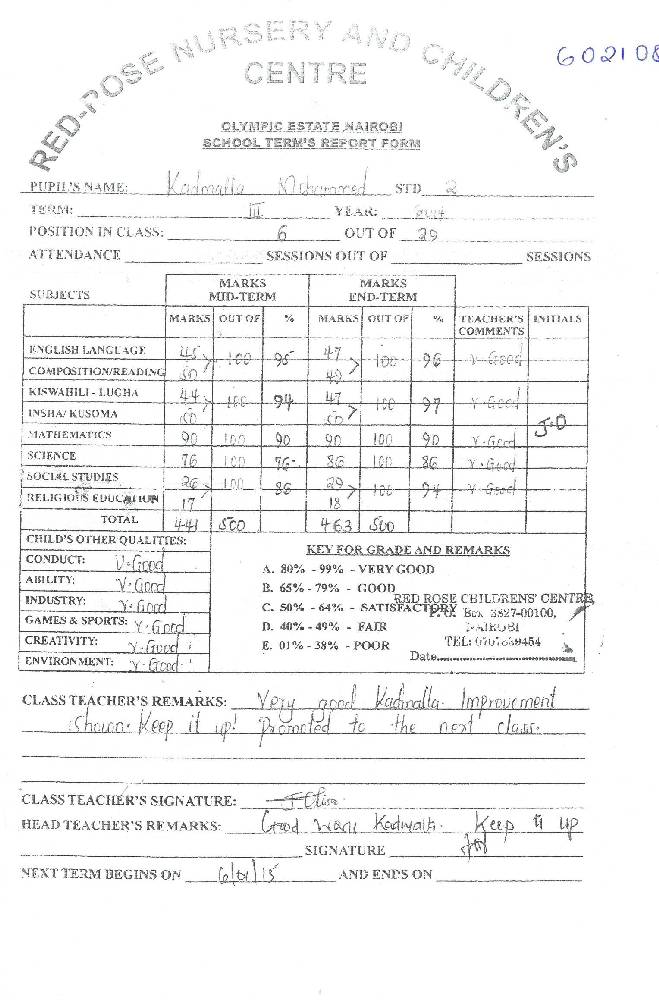 602108
RED-ROSE NURSERY AND CHILDREN'S
CENTRE
OLYMPIC ESTATE NAIROBI
SCHOOL TERM'S REPORT FORM
PUPIL'S NAME: Kadmalla Mohammed STD 2
TERM: III YEAR: 2014
POSITION IN CLASS: 6 OUT OF 29
ATTENDANCE SESSIONS OUT OF SESSIONS
SUBJECTS MARKS MID-TERM MARKS END-TERM
MARKS OUT OF % MARKS OUT OF % TEACHER'S COMMENTS INITIALS
ENGLISH LANGUAGE 45 100 95 47 100 96 V-Good
COMPOSITION/READING 50 49
KISWAHILI - LUGHA 44 100 94 47 100 97 V-Good
INSHA/ KUSOMA 50 50 J.O
MATHEMATICS 90 100 90 90 100 90 V-Good
SCIENCE 76 100 76 86 100 86 V-Good
SOCIAL STUDIES 26 100 86 29 100 94 V-Good
RELIGIOUS EDUCATION 17 18
TOTAL 441 500 463 500
CHILD'S OTHER QUALITIES:
CONDUCT: V-Good
ABILITY: V-Good
INDUSTRY: V-Good
GAMES & SPORTS: V-Good
CREATIVITY: V-Good
ENVIRONMENT: V-Good
KEY FOR GRADE AND REMARKS
A. 80% - 99% - VERY GOOD
B. 65% - 79% - GOOD
C. 50% - 64% - SATISFACTORY
D. 40% - 49% - FAIR
E. 01% - 38% - POOR
RED ROSE CHILDRENS' CENTRE
P. O. Box 3827-00100,
NAIROBI
Date
CLASS TEACHER'S REMARKS: Very good Kadmalla. Improvement
shown. Keep it up! Promoted to the next class.
CLASS TEACHER'S SIGNATURE:
HEAD TEACHER'S REMARKS: Good Keep it up
SIGNATURE
NEXT TERM BEGINS ON AND ENDS ON